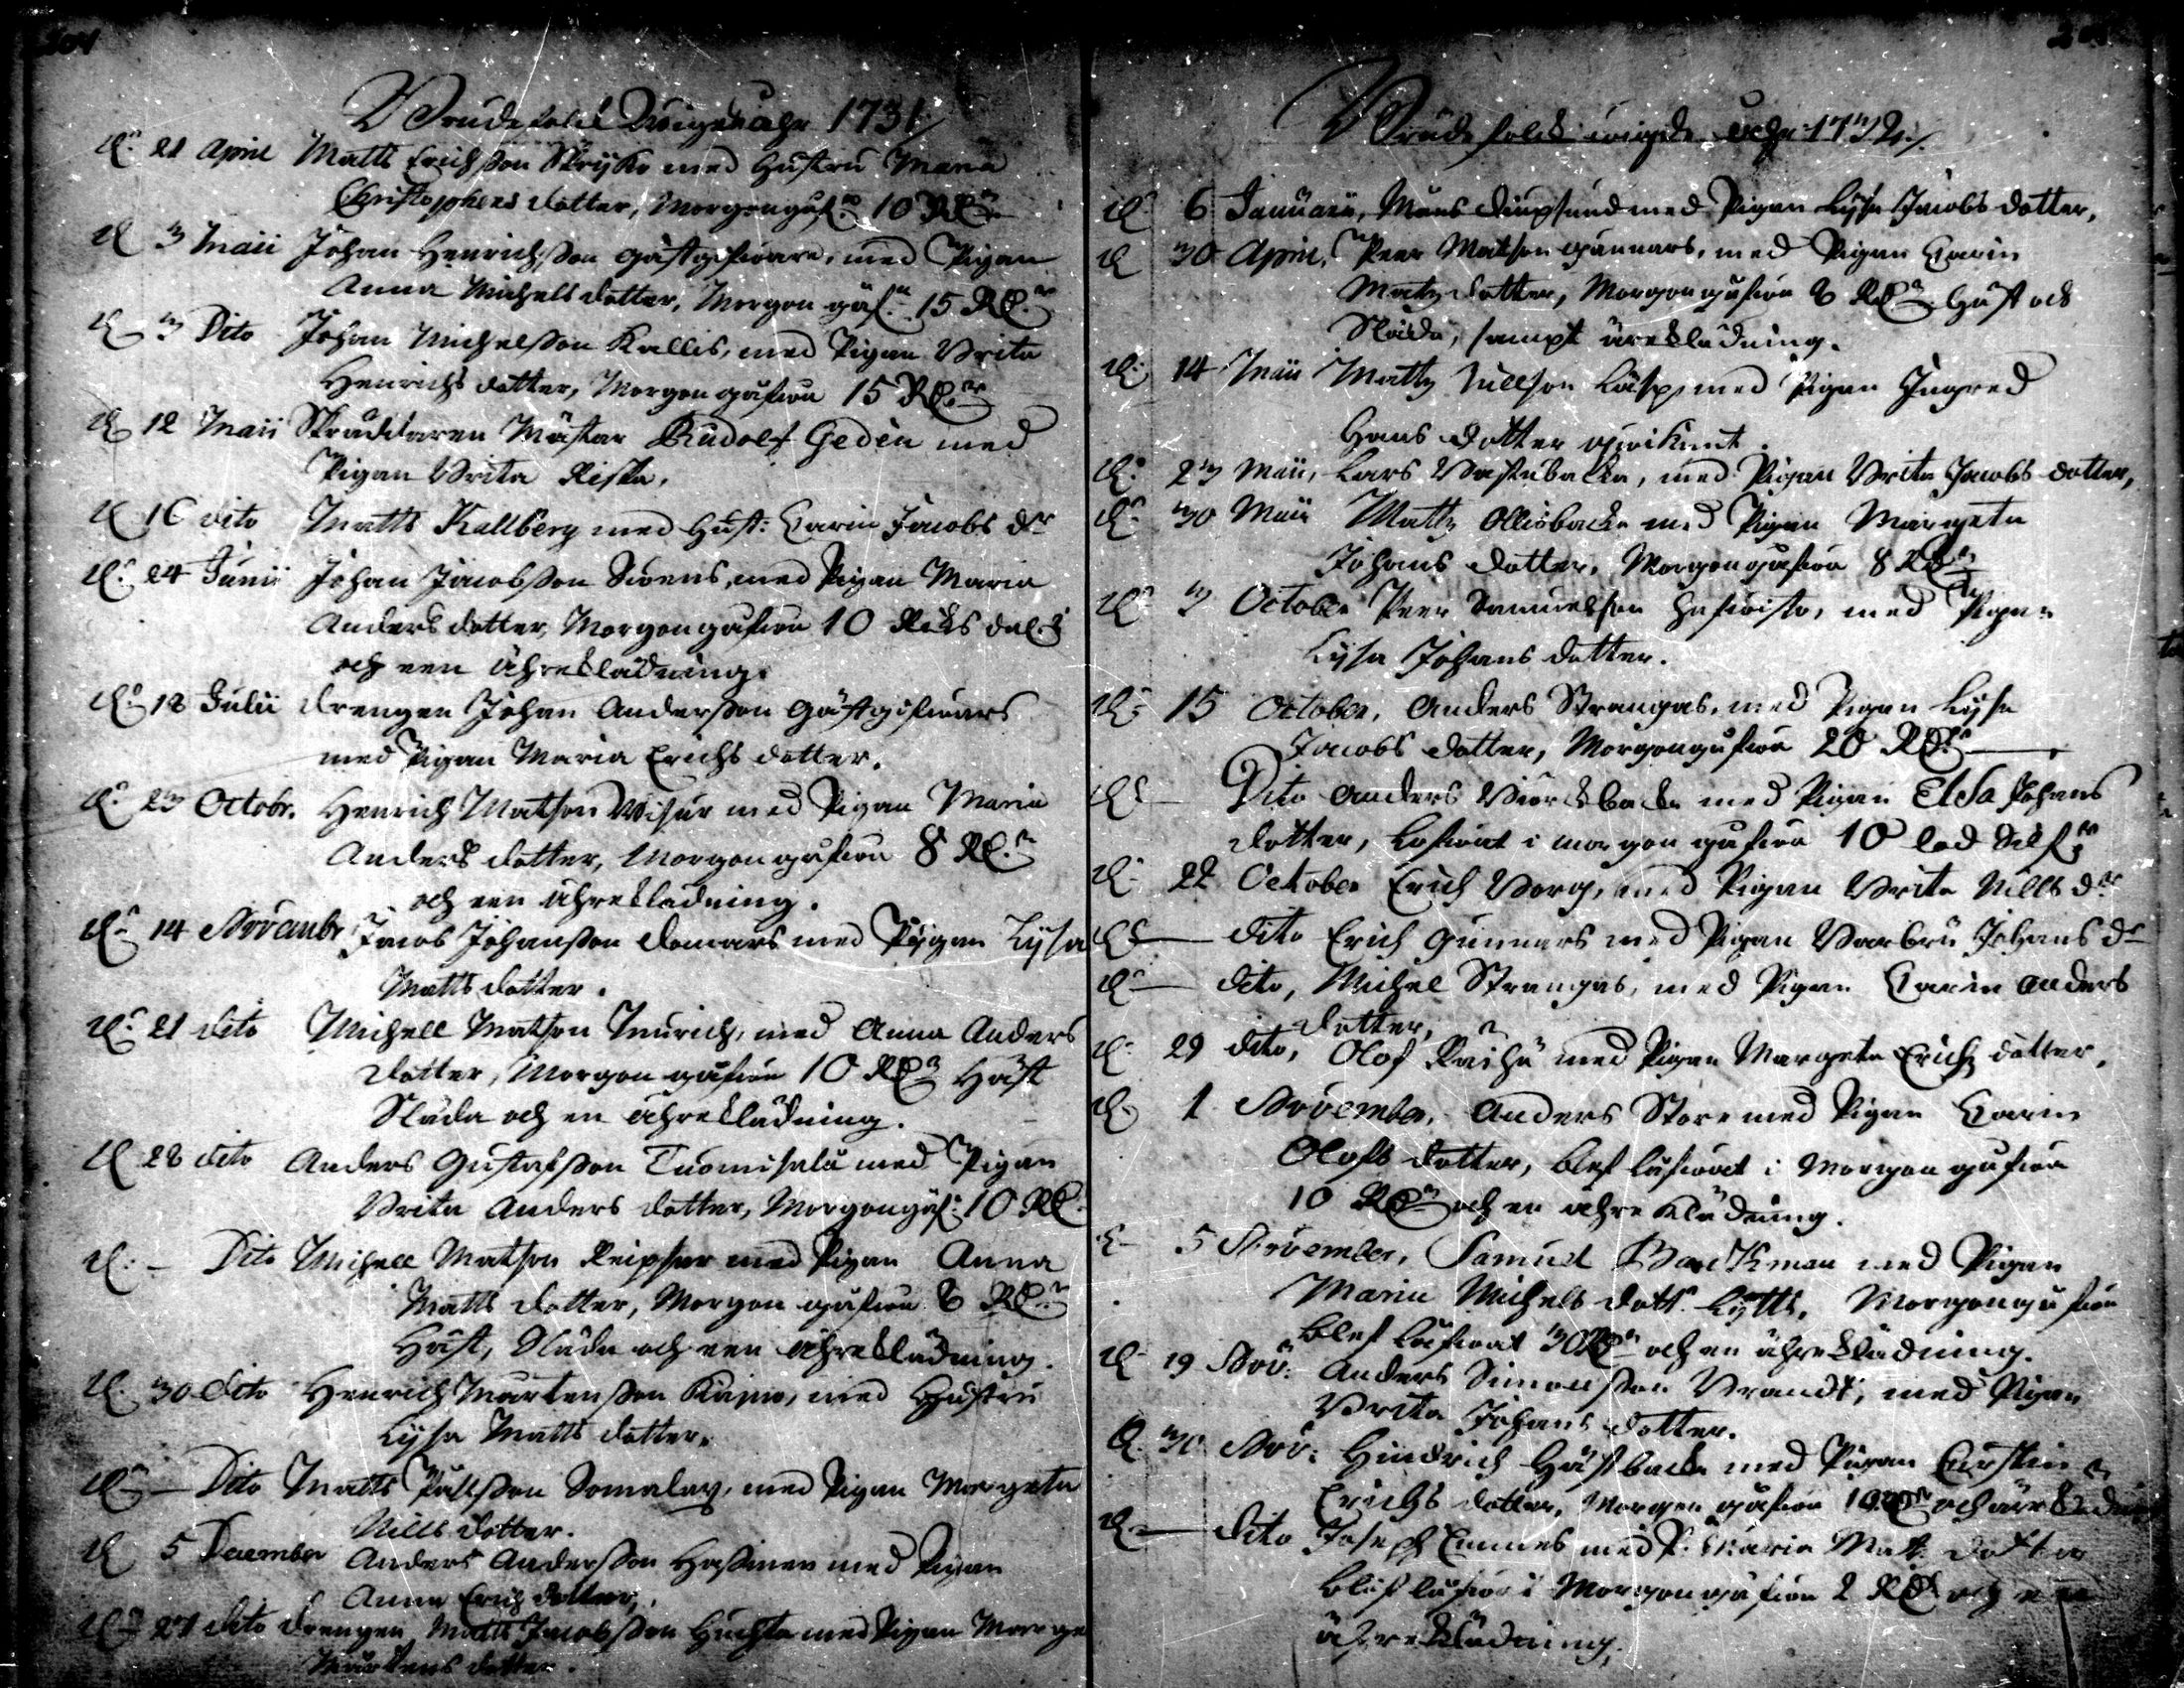 204
Brudefolck Wigde åhr 1731
D. 21 April Matts Erichsson Skryko med Hustru Maria
Christophers dotter, Morgongåf. 10 Rd.
D. 3 Maii Johan Henrichsson gästgifware, med Pigan
Anna Michells dotter, Morgon gåf. 15 Rd.
D. 3 Dito Johan Michelsson Kallis, med Pigan Brita
Henrichs dotter, Morgongåfwa 15 Rd.
D. 12 Maii Skräddaren Mästar Rudolf Gedèn med
Pigan Brita Riska.
D. 16 dito Matts Kallberg med Hust: Carin Jacobs dr
D. 24 Junii Johan Jacobsson Swens, med Pigan Maria
Anders dotter, Morgongåfwa 10 Riks dal.
och een ährekladning.
D. 18 Julii drengen Johan Andersson Gästgifwars
med Pigan Maria Erichs dotter.
D. 23 Octobr. Henrich Matsson Wisur med Pigan Maria
Anders dotter, Morgongåfwa 8 Rd.
och een ährekladning.
D. 14 Novembr Jacob Johansson Domars med Pigan Lysa
Matts dotter.
D. 21 dito Michell Matson med Anna Anders
dotter, Morgon gåfwa 10 Rd. Häst
Släda och en ährekladning.
D. 28 dito Anders Gustafsson Tuomisala med Pigan
Brita Anders dotter, Morgongåf: 10 Rd.
D. - Dito Michell Matson med Pigan Anna
Matts dotter, Morgon gåfwa 8 Rd.
Häst, Släda och een ährekladning.
D. 30 dito Henrich Martensson med Hustru
Lysa Matts dotter.
D. - Dito Matts Pålsson med Pigan Margeta
Nills dotter.
D. 5 December Anders Andersson med Pigan
Anna Erichs dotter,
D. 27 dito drengen Matts Jacobsson Huchta med Pigan Marge
Mårtens dotter.
Brude folck wigde åhr 1732.
D. 6 Januarii, Måns Diupsund med Pigan Lysa Jacobs dotter,
D. 30 April, Peer Matson Gunnars, med Pigan Carin
Matz dotter, Morgongåfwa 8 Rd. Häst och
Släda, sampt äreklädning.
D. 14 Maii Matz Nillson med Pigan Ingred
Hans dotter
D. 23 Maii, Lars Wästubacka, med Pigan Brita Jacobs dotter,
D. 30 Maii Matz Ollisbacka med Pigan Margeta
Johans dotter, Morgongåfwa 8 Rd.
D. 3 October Peer Samuelsson med Pigan
Lysa Johans dotter.
D. 15 October, Anders Strangas, med Pigan Lysa
Jacobs dotter, Morgongåfwa 20 Rd.
D. Dito Anders Biörckbacka med Pigan Elsa Johans
dotter, lofwat i morgon gåfwa 10 lod Silf.
D. 22 October Erich Borg, med Pigan Brita Nills dr
D. dito Erich Gunnars med Pigan Barbru Johans dr
D. dito, Michel Strangas, med Pigan Carin Anders
dotter,
D. 29 dito, Olof med Pigan Margeta Erichs dotter,
D. 1 November, Anders Store med Pigan Carin
Olofs dotter, blef lofwat i Morgon gåfwa
10 Rd. och en ähre klädning.
D. 5 November, Samuel Backman med Pigan
Maria Michels dott. Lytts, Morgongåfwa
blef lofwat 30 Rd. och en ähreklädning.
D. 19 Nov: Anders Simonsson Brandt, med Pigan
Brita Johans dotter.
D. 30 Nov: Hindrich Hästbacka med Pigan Cirstin
Erichs dotter, Morgon gåfwa 10 Rd.
D. dito Joseph Emmes med P. Maria Mat. dotter
blef lofwat i Morgongåfwa 2 Rd. och een
ähreklädning.